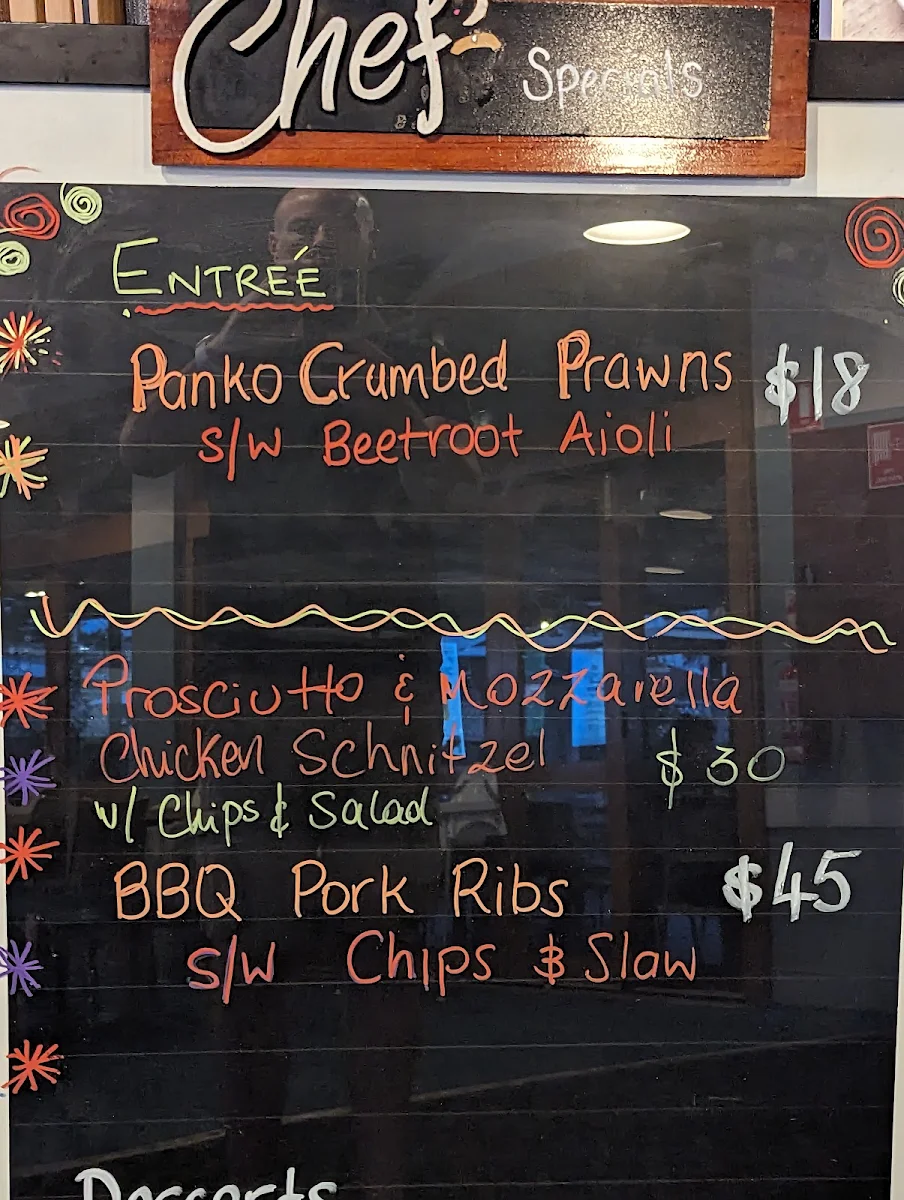 Chef's Specials
ENTREÉ
Panko Crumbed Prawns $18
s/w Beetroot Aioli
Prosciutto & Mozzarella
Chicken Schnitzel $30
w/ Chips & Salad
BBQ Pork Ribs $45
s/w Chips & Slaw
Desserts